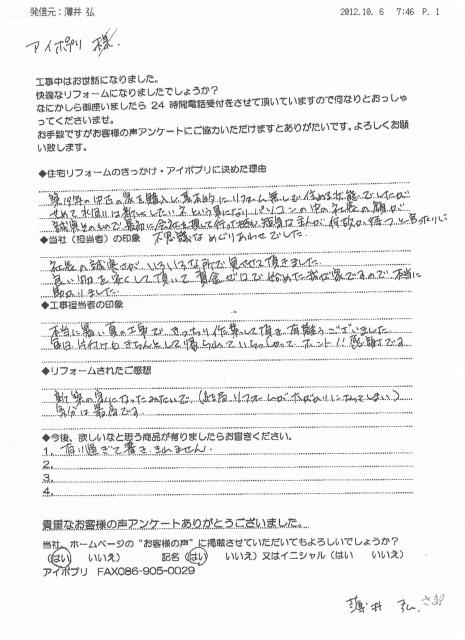 発信元:薄井 弘 2012.10. 6 7:46 P. 1
アイポプリ 様.
工事中はお世話になりました。
快適なリフォームになりましたでしょうか?
なにかしら御座いましたら 24 時間電話受付をさせて頂いていますので何なりとおっしゃ
ってくださいませ。
お手数ですがお客様の声アンケートにご協力いただけますとありがたいです。よろしくお願
い致します。
◆住宅リフォームのきっかけ・アイポプリに決めた理由
築19年の中古の家を購入し基本的にリフォーム無しで住める状態でしたが
せめて水回りは新しくしたい という事になりパソコンの中の社長の顔が
誠実そのもので最初に会社を
◆当社(担当者)の印象 不思議なめぐりあわせでした.
社長の誠実さがいろいろな所で見させて頂きました
良い物を安くして頂いて 資金ゼロで始めた我が家ですので 本当に
助かりました.
◆工事担当者の印象
本当に暑い夏の工事で きっちり作業して頂き 有難うございました
毎日 片付けもきちんとして帰られていらっしゃって ホント!! 感謝です
◆リフォームされたご感想
新築の家になったみたいで.(結局 リフォームが大がかりになってしまい)
気分は最高です.
◆今後、欲しいなと思う商品が有りましたらお書きください。
1. 有り過ぎて書ききれません.
2.
3.
4.
貴重なお客様の声アンケートありがとうございました。
当社、ホームページの"お客様の声"に掲載させていただいてもよろしいでしょうか?
(はい いいえ) 記名(はい いいえ)又はイニシャル(はい いいえ)
アイポプリ FAX086-905-0029
薄井 弘. さま!